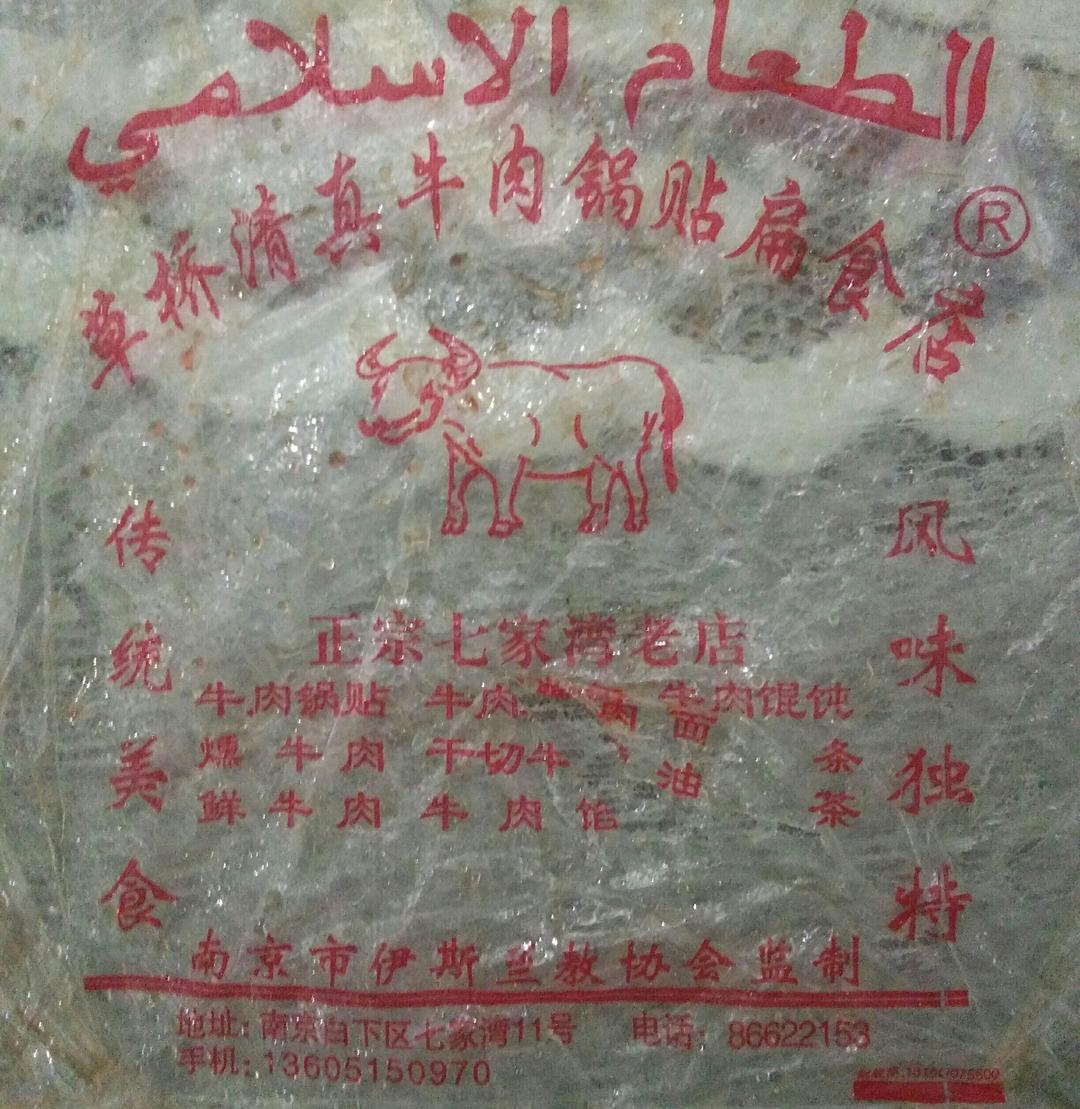 الطعام الاسلامي
草桥清真牛肉锅贴扁食店
®
传统美食
风味独特
正宗七家湾老店
牛肉锅贴 牛肉 肉 面 牛肉馄饨
燻牛肉 干切牛 油 条
鲜牛肉 牛肉馅 茶
南京市伊斯兰教协会监制
地址:南京白下区七家湾11号 电话:86622153
手机:13605150970